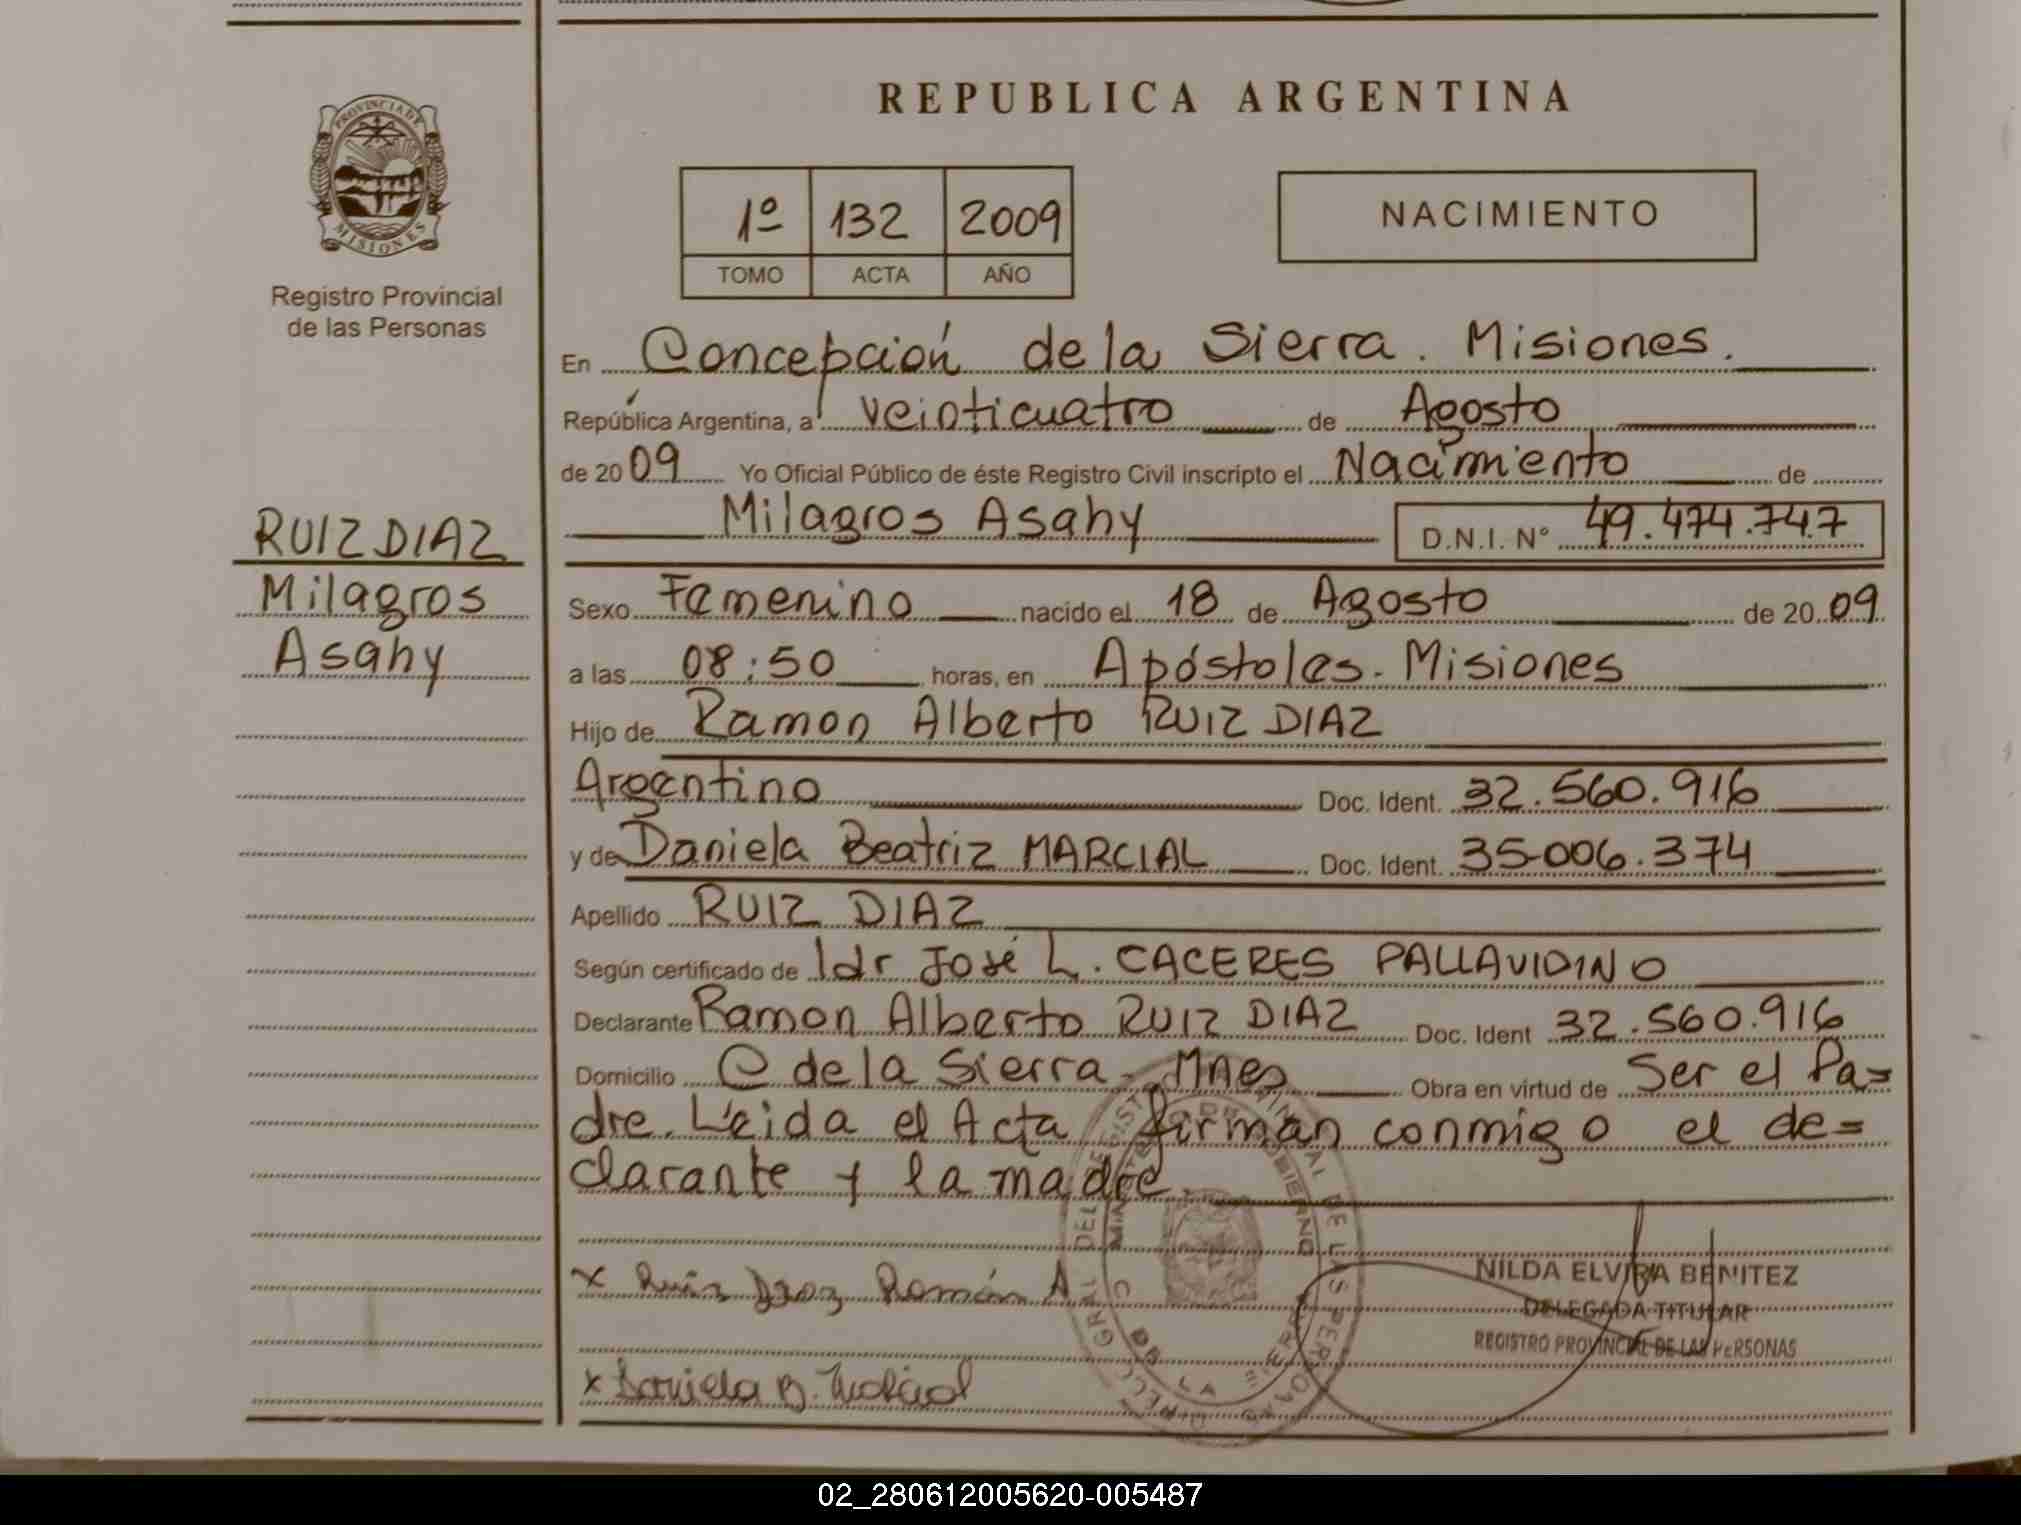 REPUBLICA ARGENTINA
PROVINCIA DE MISIONES
Registro Provincial
de las Personas
1º 132 2009
TOMO ACTA AÑO
NACIMIENTO
RUIZ DIAZ
Milagros
Asahy
En Concepción de la Sierra. Misiones.
República Argentina, a veinticuatro de Agosto
de 2009 Yo Oficial Público de éste Registro Civil inscripto el Nacimiento de
Milagros Asahy D.N.I. Nº 49.474.747
Sexo Femenino nacido el 18 de Agosto de 2009
a las 08:50 horas, en Apóstoles. Misiones
Hijo de Ramon Alberto RUIZ DIAZ
Argentino Doc. Ident. 32.560.916
y de Daniela Beatriz MARCIAL Doc. Ident. 35.006.374
Apellido RUIZ DIAZ
Según certificado de Idr José L. CACERES PALLAVIDINO
Declarante Ramon Alberto RUIZ DIAZ Doc. Ident 32.560.916
Domicilio C de la Sierra - Mnes Obra en virtud de Ser el Pa=
dre. Léida el Acta firman conmigo el de=
clarante y la madre
x Ruiz Diaz Román A
x Daniela B. Marcial
NILDA ELVIRA BENITEZ
DELEGADA TITULAR
REGISTRO PROVINCIAL DE LAS PERSONAS
02_280612005620-005487